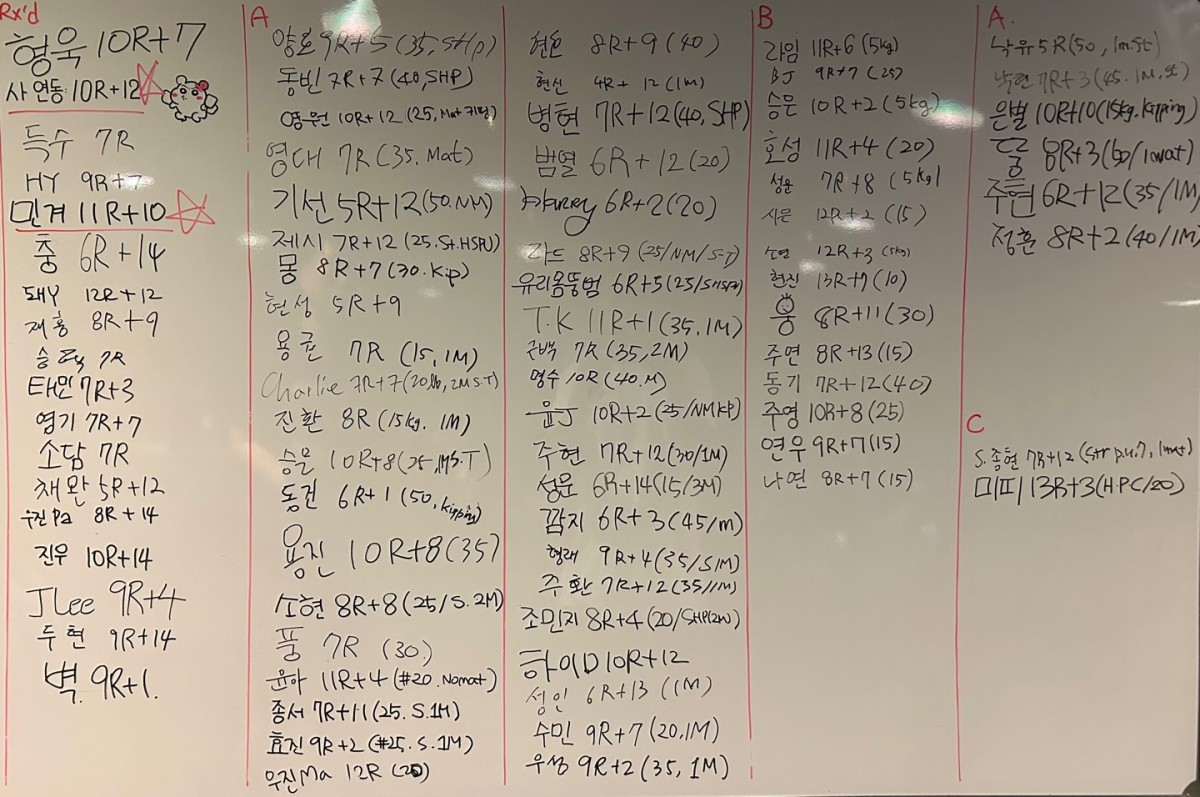 Rx'd
형욱 10R+7
사 연동 10R+12
득수 7R
HY 9R+7
민겨 11R+10
충 6R+14
돼Y 12R+12
재홍 8R+9
승 7R
태민 7R+3
엽기 7R+7
소담 7R
채완 5R+12
우진Pa 8R+14
진우 10R+14
JLee 9R+4
두현 9R+14
벽. 9R+1.
A
양도 9R+5 (35, SHP)
동빈 7R+7 (40, SHP)
영원 10R+12 (25, Mat 키핑)
영대 7R (35. Mat)
기선 5R+12 (50. NM)
제시 7R+12 (25. St. HSPU)
몽 8R+7 (30. Kip)
현성 5R+9
용균 7R (15, 1M)
Charlie 7R+7 (20lb, 2M S.T)
진환 8R (15kg. 1M)
승문 10R+8 (25, 1M S.T)
동건 6R+1 (50, kipping)
용진 10R+8 (35)
소현 8R+8 (25/S. 2M)
풍 7R (30)
윤아 11R+4 (#20. Nomat)
종서 7R+11 (25. S. 1M)
효진 9R+2 (#25. S. 1M)
우진Ma 12R (20)
8R+9 (40)
현신 4R+12 (1M)
병현 7R+12 (40, SHP)
범열 6R+12 (20)
Harry 6R+2 (20)
라드 8R+9 (25/NM/S-T)
유리몸뚱범 6R+5 (25/SHSPU)
T.K 11R+1 (35. 1M)
근백 7R (35, 2M)
명수 10R (40. M)
윤J 10R+2 (25/NM KP)
주현 7R+12 (30/1M)
성문 6R+14 (15/3M)
깜지 6R+3 (45/m)
형래 9R+4 (35/S1M)
주환 7R+12 (35/1M)
조민지 8R+4 (20/SHP(2M))
하이D 10R+12
성인 6R+13 (1M)
수민 9R+7 (20.1M)
우성 9R+2 (35, 1M)
B
라임 11R+6 (5kg)
BJ 9R+7 (25)
승문 10R+2 (5kg)
호성 11R+4 (20)
성윤 7R+8 (5kg)
시은 12R+2 (15)
소연 12R+3 (5kg)
현진 13R+7 (10)
웅 8R+11 (30)
주연 8R+13 (15)
동기 7R+12 (40)
주영 10R+8 (25)
연우 9R+7 (15)
나연 8R+7 (15)
A.
낙유 5R (50, 1m. St)
낙현 7R+3 (45. 1M, St)
은별 10R+10 (15kg. Kipping)
둘 8R+3 (50/1mat)
주현 6R+12 (35/1M)
정훈 8R+2 (40/1M)
C
S. 종현 7R+12
미피 13R+3 (H.P.C/20)